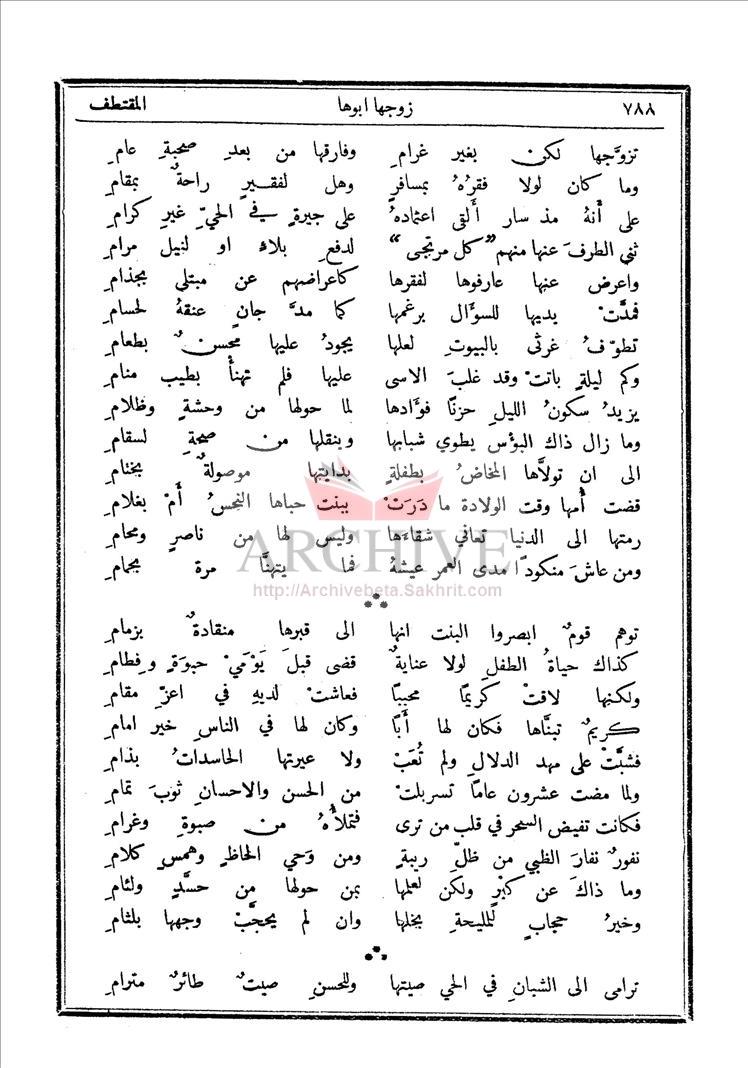 ٧٨٨ زوجها ابوها المقتطف
تزوَّجها لكن بغير غرامِ وفارقها من بعدِ صحبةِ عامِ
وما كان لولا فقرُهُ بمسافرٍ وهل لفقيرٍ راحةٌ بمقامِ
على أَنهُ مذ سار أَلقى اعتمادهُ على جيرةٍ في الحيِّ غيرِ كرامِ
ثنى الطرفَ عنها منهم "كل مرتجى" لدفعِ بلاءٍ او لنيلِ مرامِ
واعرض عنها عارفوها لفقرها كاعراضهم عن مبتلى بجذامِ
فمدَّتْ يديها للسوَّال برغمها كما مدَّ جانٍ عنقهُ لحسامِ
تطوّفُ غرثى بالبيوتِ لعلها يجودُ عليها محسنٌ بطعامِ
وكم ليلةٍ باتتْ وقد غلبَ الاسى عليها فلم تهنأْ بطيب منامِ
يزيدُ سكونُ الليلِ حزنًا فوَّادها لما حولها من وحشةٍ وظلامِ
وما زال ذاك البوُّس يطوي شبابها وينقلها من صحةٍ لسقامِ
الى ان تولاَّها المخاضُ بطفلةٍ بدايتها موصولةٌ بختامِ
قضت أُمها وقت الولادة ما دَرَتْ ببنت حباها النحسُ أَمْ بغلامِ
رمتها الى الدنيا تعاني شقاءَها وليس لها من ناصرٍ ومحامِ
ومن عاشَ منكودًا مدى العمر عيشهُ فما يتهنَّا مرة بحمامِ
ARCHIVE
http://Archivebeta.Sakhrit.com
توهم قومٌ ابصروا البنت انها الى قبرها منقادةٌ بزمامِ
كذاك حياةُ الطفلِ لولا عنايةٌ قضى قبلَ يَوْمَيْ حبوةٍ وفِطامِ
ولكنها لاقتْ كريمًا محببًا فعاشتْ لديهِ في اعزِّ مقامِ
كريمٌ تبنَّاها فكان لها أَبًا وكان لها في الناسِ خير امامِ
فشبَّتْ على مهد الدلالِ ولم تُعَبْ ولا عيرتها الحاسداتُ بذامِ
ولما مضت عشرون عامًا تسربلتْ من الحسن والاحسانِ ثوبَ تمامِ
فكانت تفيض السحر في قلب من ترى فتملأُهُ من صبوةٍ وغرامِ
نفورٌ نفارَ الظبي من ظلِّ ريبةٍ ومن وَحيِ الحاظٍ وهمسِ كلامِ
وما ذاك عن كبْرٍ ولكن لعلمها بمن حولها مِن حسَّدٍ ولئامِ
وخيرُ حجابٍ للمليحةِ بخلها وان لم يحجَّبْ وجهها بلثامِ
ترامى الى الشبانِ في الحي صيتها وللحسنِ صيتٌ طائرٌ مترامِ